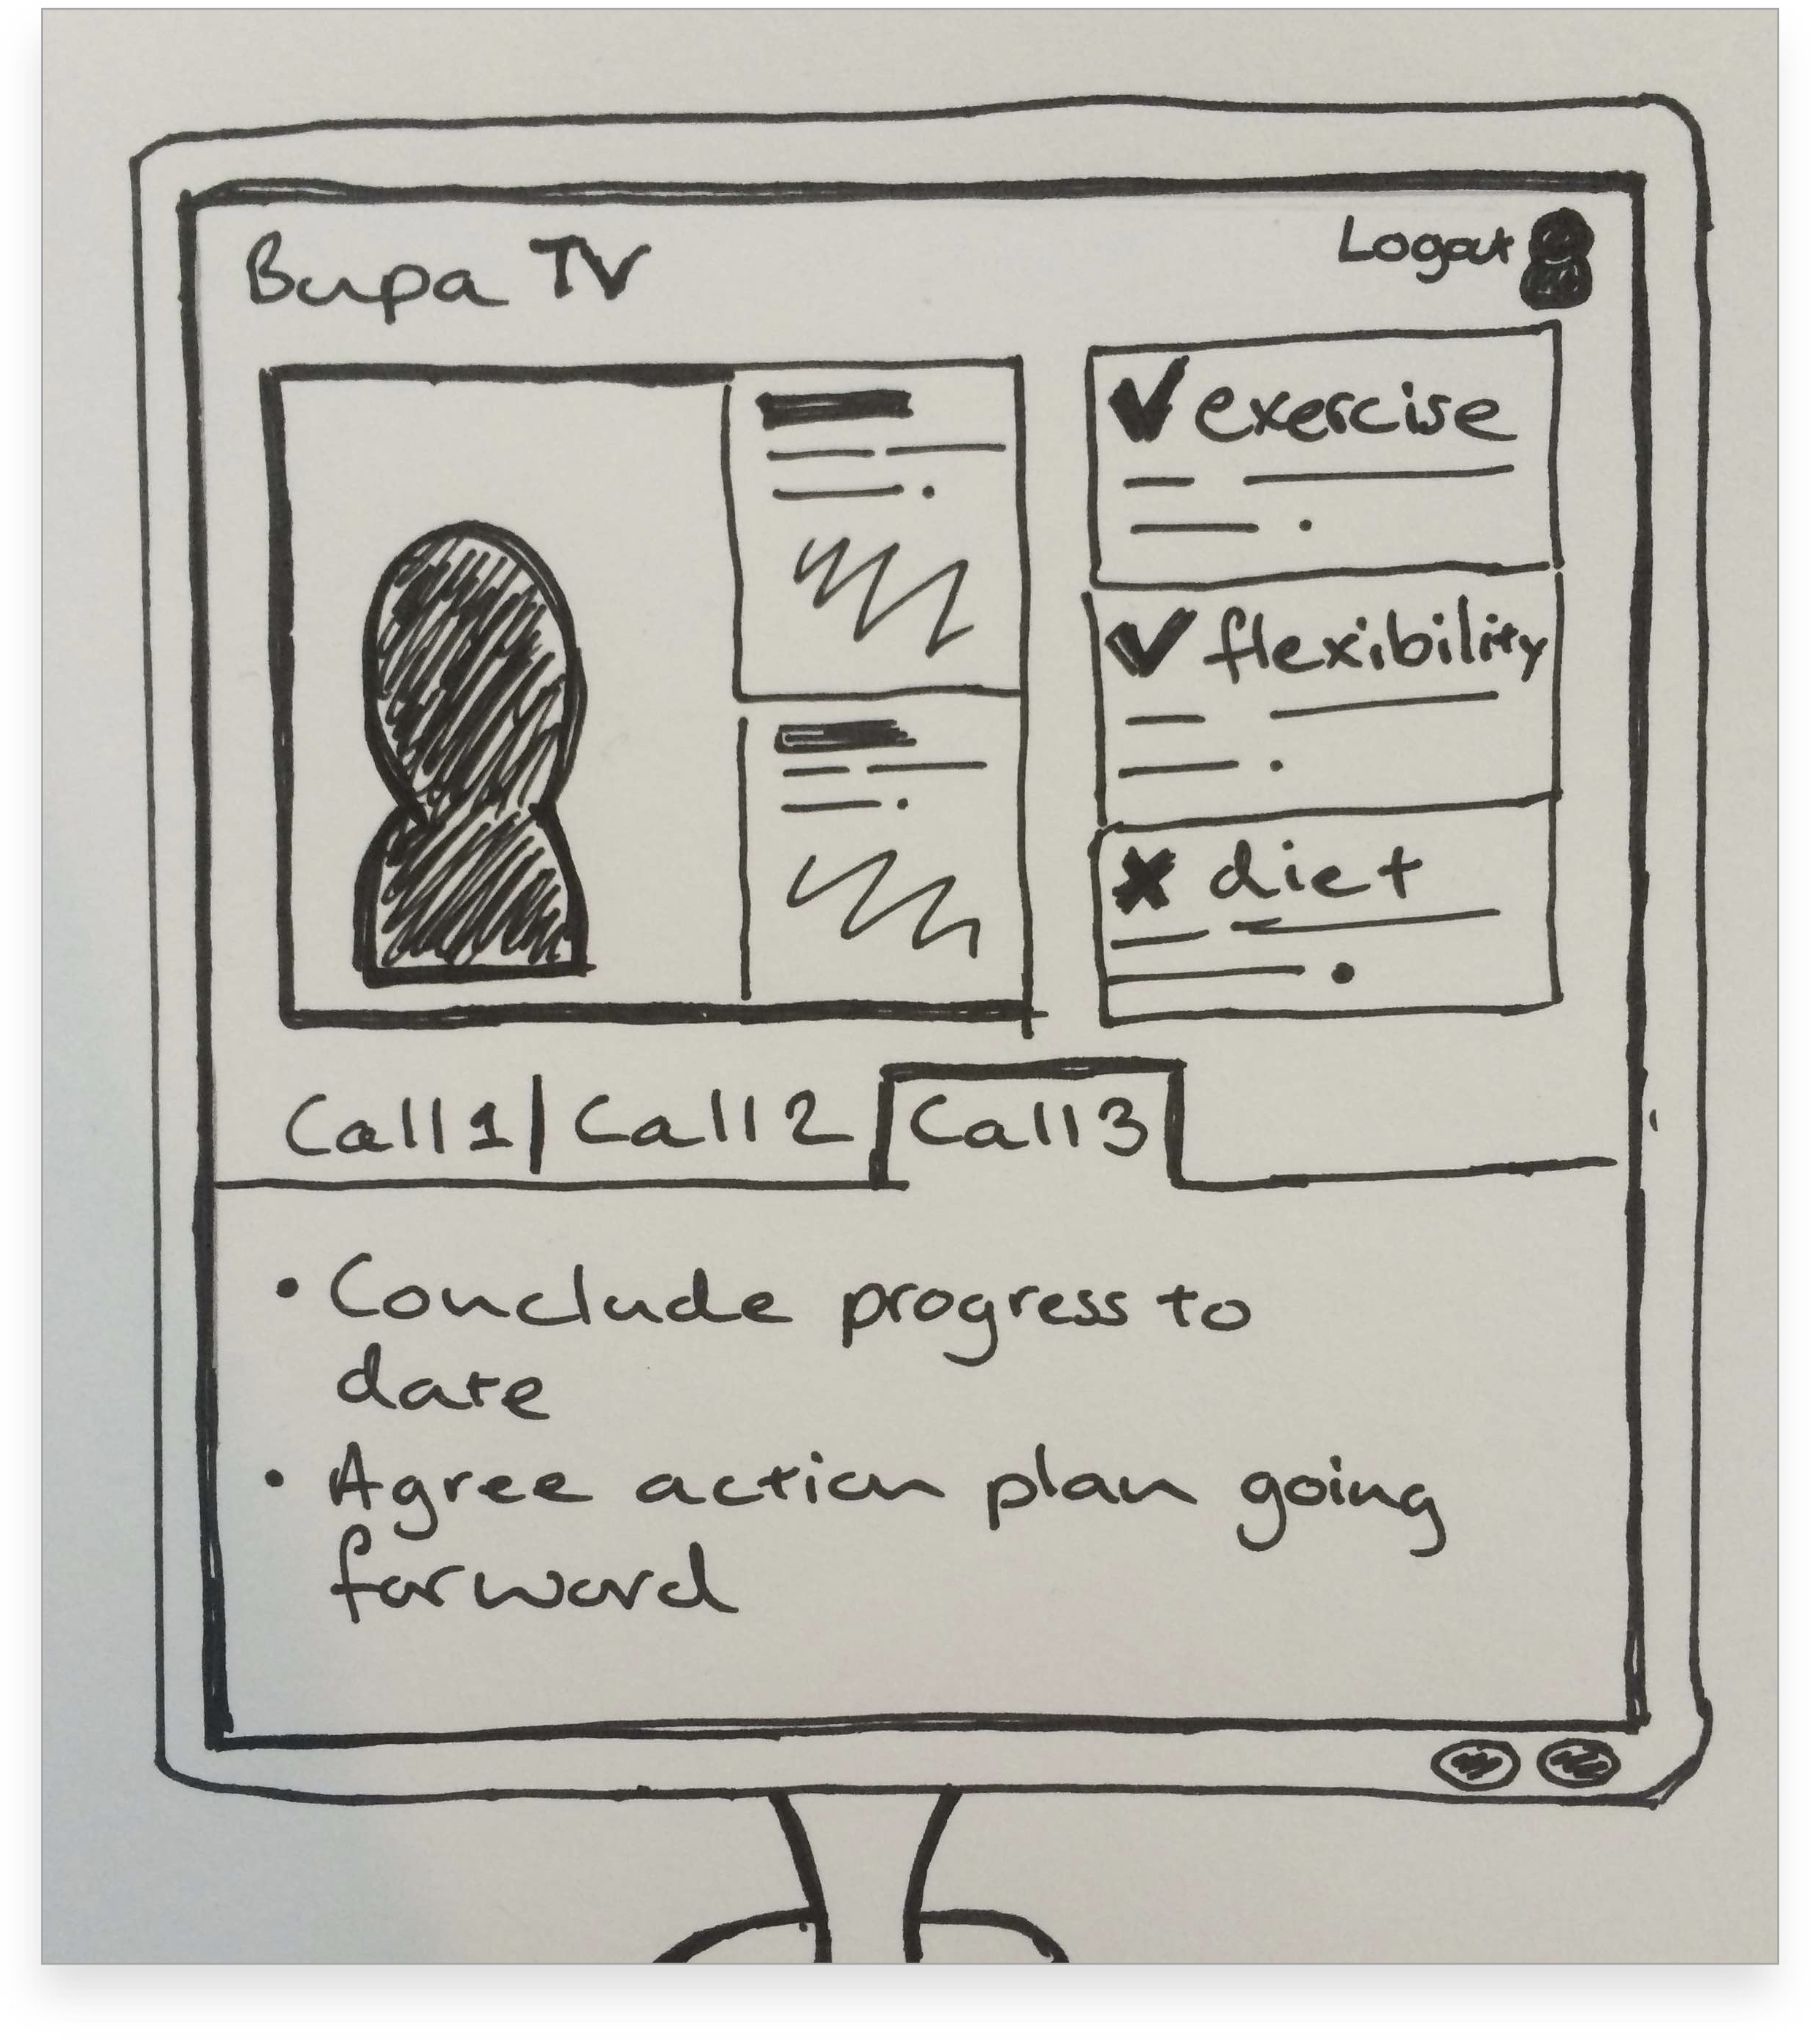 Bupa TV
Logout
exercise
flexibility
diet
Call 1 | Call 2 Call 3
• Conclude progress to
date
• Agree action plan going
forward